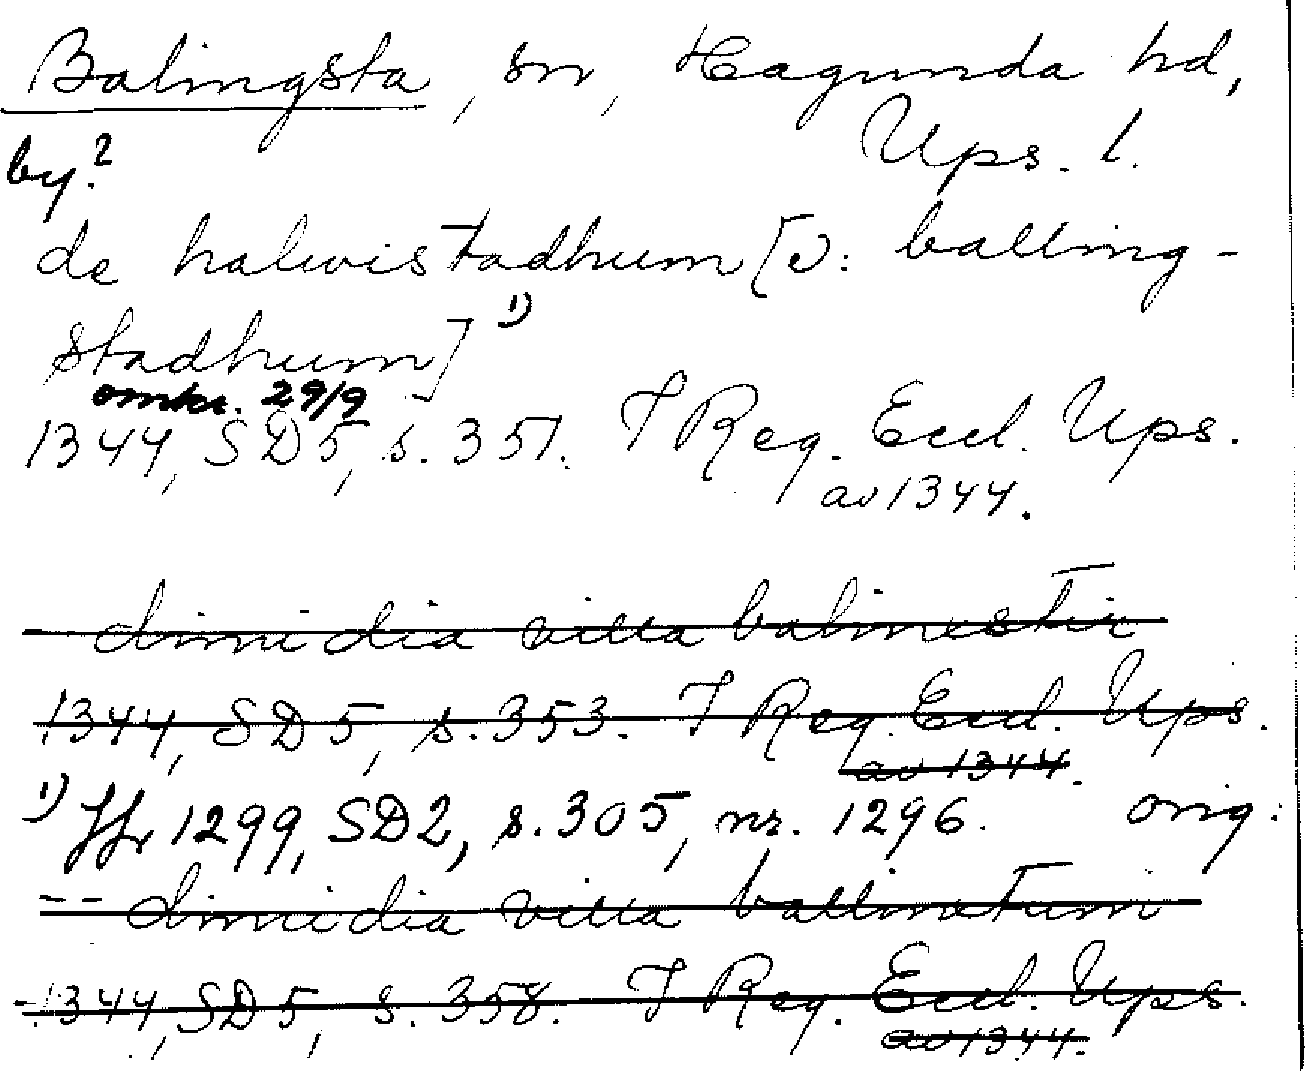 Balingsta, sn, Hagunda hd,
by? Ups. l.
de halwistadhum [ɔ: balling-
stadhum] 1)
omkr. 29/9
1344, SD 5, s. 351. I Reg. Eccl. Ups.
av 1344.
dimidia villa balinestir
1344, SD 5, s. 353. I Reg. Eccl. Ups.
av 1344.
1) Jfr 1299, SD2, s. 305, nr. 1296. orig:
-- dimidia villa ballinstum
1344, SD 5, s. 358. I Reg. Eccl. Ups.
av 1344.